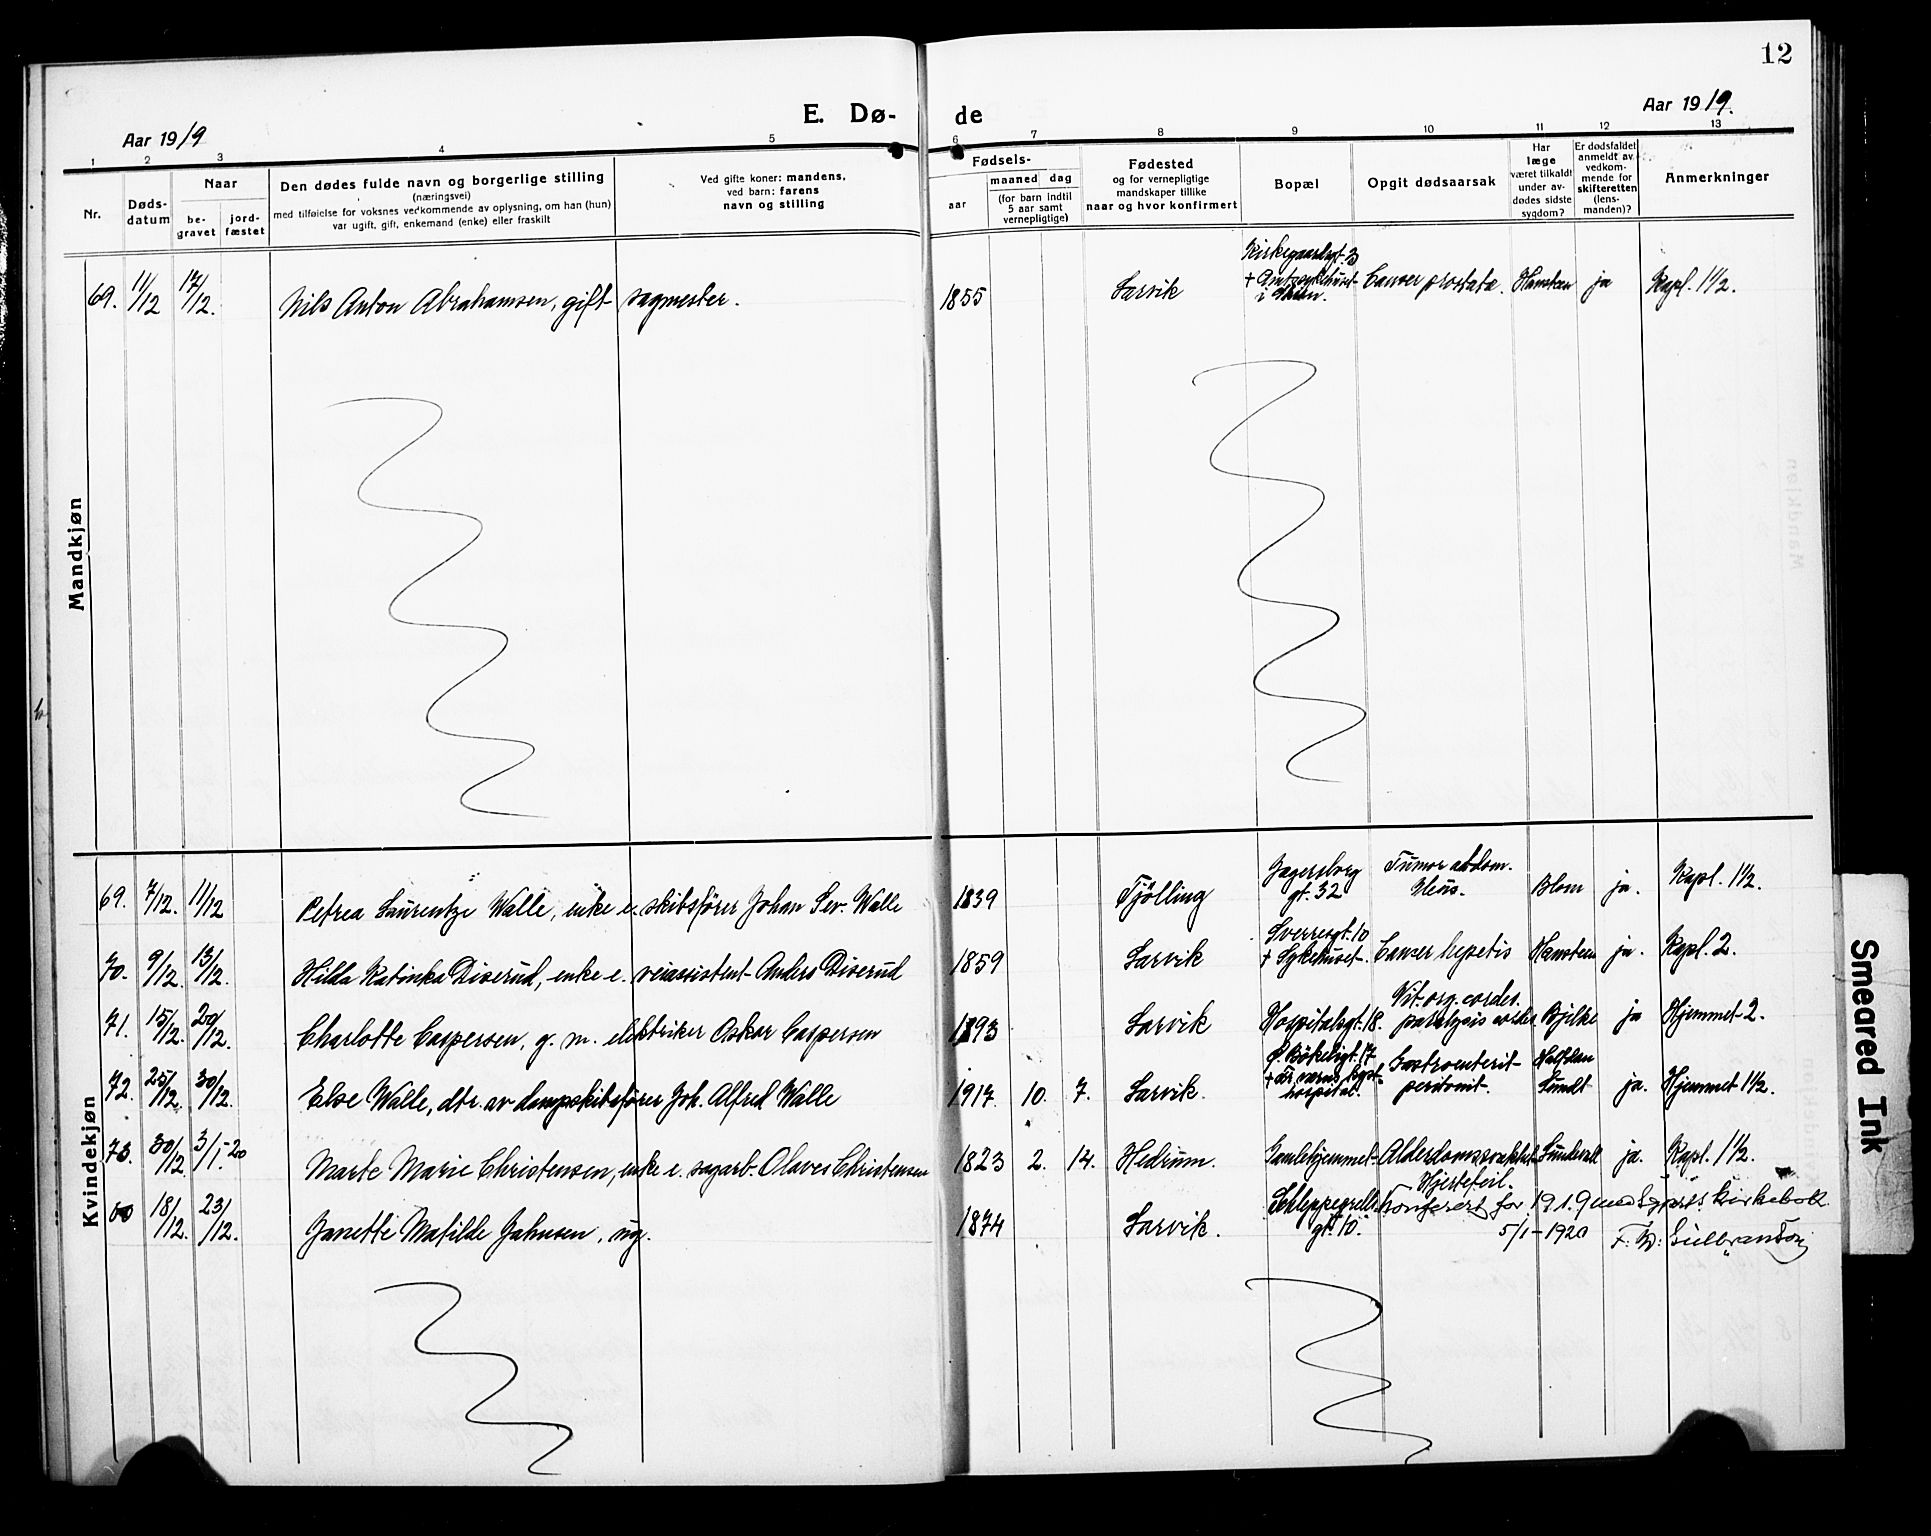 12
E. Dø- de
Aar 1919
Aar 1919.
1 2 3 4 5 6 7 8 9 10 11 12 13
Nr.
Døds-
datum
Naar
be-
gravet
jord-
fæstet
Den dødes fulde navn og borgerlige stilling
(næringsvei)
med tilføielse for voksnes vedkommende av oplysning, om han (hun)
var ugift, gift, enkemand (enke) eller fraskilt
Ved gifte koner: mandens,
ved barn: farens
navn og stilling
Fødsels-
aar
maaned dag
(for barn indtil
5 aar samt
vernepligtige)
Fødested
og for vernepligtige
mandskaper tillike
naar og hvor konfirmert
Bopæl
Opgit dødsaarsak
Har
læge
været tilkaldt
under av-
dødes sidste
sygdom?
Er dødsfaldet
anmeldt av
vedkom-
mende for
skifteretten
(lens-
manden)?
Anmerkninger
Mandkjøn
Kirkegaardsgt. 3
69. 11/12 17/12. Nils Anton Abrahamsen, gift sagmester. 1855 Larvik Cancer prostata. Hansteen ja Kapl. 1 1/2.
Kvindekjøn
Jegersborg
gt. 32
Tumor abdom.
Ileus.
69. 7/12. 11/12 Petrea Laurentze Walle, enke e. skibsfører Johan Sev. Walle 1839 Tjølling Blom ja. Kapl. 1 1/2.
Sverresgt. 10
+ Sykehuset.
70. 9/12. 13/12. Hilda Katinka Diserud, enke e. veiassistent Anders Diserud 1859 Larvik Cancer hepatis Hansteen ja. Kapl. 2.
Vit. org. cordis.
paralysis cordis
71. 15/12. 20/12. Charlotte Caspersen, g. m. elektriker Oskar Caspersen 1893 Larvik Hospitalsgt. 18. Bjelke ja Hjemmet 2.
Ø. Bøkeligt. 17
hospital.
Gastroenterit
peritonit.
Halfdan
Sundt
72. 25/12. 30/12. Else Walle, dtr. av dampskibsfører Joh. Alfred Walle 1917. 10. 7. Larvik. ja. Hjemmet 1 1/2.
73. 30/12. 3/1.-20 Marte Marie Christensen, enke e. sagarb. Olaves Christensen 1823 2. 14. Hedrum. Gamlehjemmet Alderdomssvakhet Sundvall ja. Kapl. 1 1/2.
Schleppegrells
gt. 10.
Hjertefeil.
18/12. 23/12. Janette Matilde Jahnsen, ug. 1874 Larvik.
Konferert for 1919 med kirkebok
5/1-1920
Smeared Ink